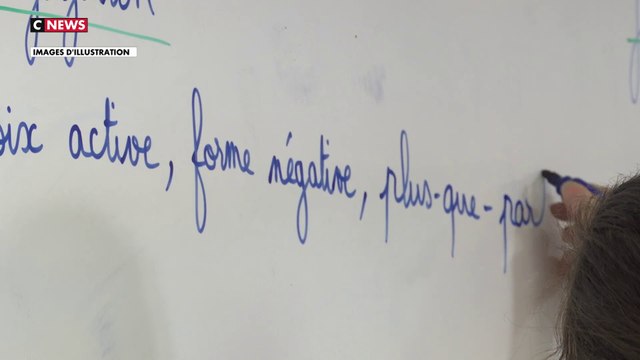 CNEWS
IMAGES D'ILLUSTRATION
oix active, forme négative, plus-que-par